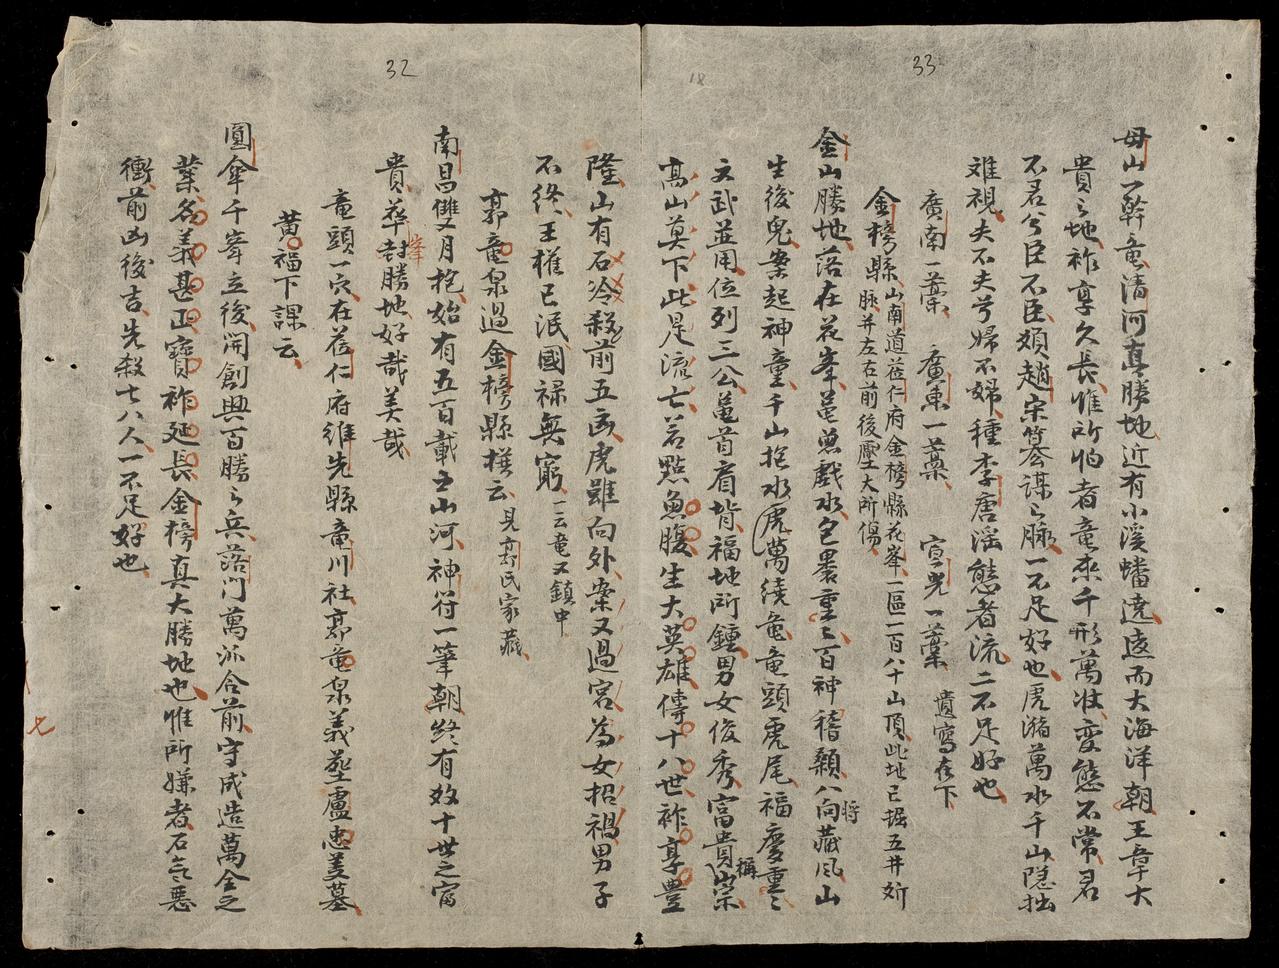 33
18
母山一幹竜清河真勝地近有小溪蟠遶遠而大海洋朝王章大
貴之地祚享久長惟所怕者竜来千形萬狀変態不常君
不君兮臣不臣頻趙宋簒謀之脉一不足好也虎潴萬水千山隐拙
难視夫不夫兮婦不婦種李唐淫態者流二不足好也
廣南一藁 廣東一藁 宣光一藁 遺寫在下
金榜縣山南道莅仁府金榜縣花峯一區一百八十山頂此地已掘五井斫
脉并左右前後壓大所傷
金山勝地落在花峯亀蒐戯水包褁重〻百神稽顙八向藏风山
時
生後鬼案起神童千山抱水虎萬繞亀竜頭虎尾福慶重〻
文武並用位列三公亀首肩背福地所鍾男女俊秀富貴崇
稱
髙山莫下此是流七若點魚腹生大英雄傳十八世祚享豊
隆山有石冷殺前五凶虎雖向外案又過宮為女招禍男子
不終王權已泯國禄無窮一云竜又鎮中
32
髙竜泉過金榜縣横云見髙氏家蔵
南昌雙月抱始有五百載之山河神符一筆朝終有效十世之富
貴華封勝地好哉美哉
峯
竜頭一穴在莅仁府維先縣竜川社髙竜泉義塟盧忠美墓
黃福下課云
圓傘千峯立後開創興百勝之兵落门萬派合前守成造萬全之
葉名義甚正寶祚延長金榜真大勝地也惟所嫌者石气悪
衝前凶後吉先殺七八人一不足好也